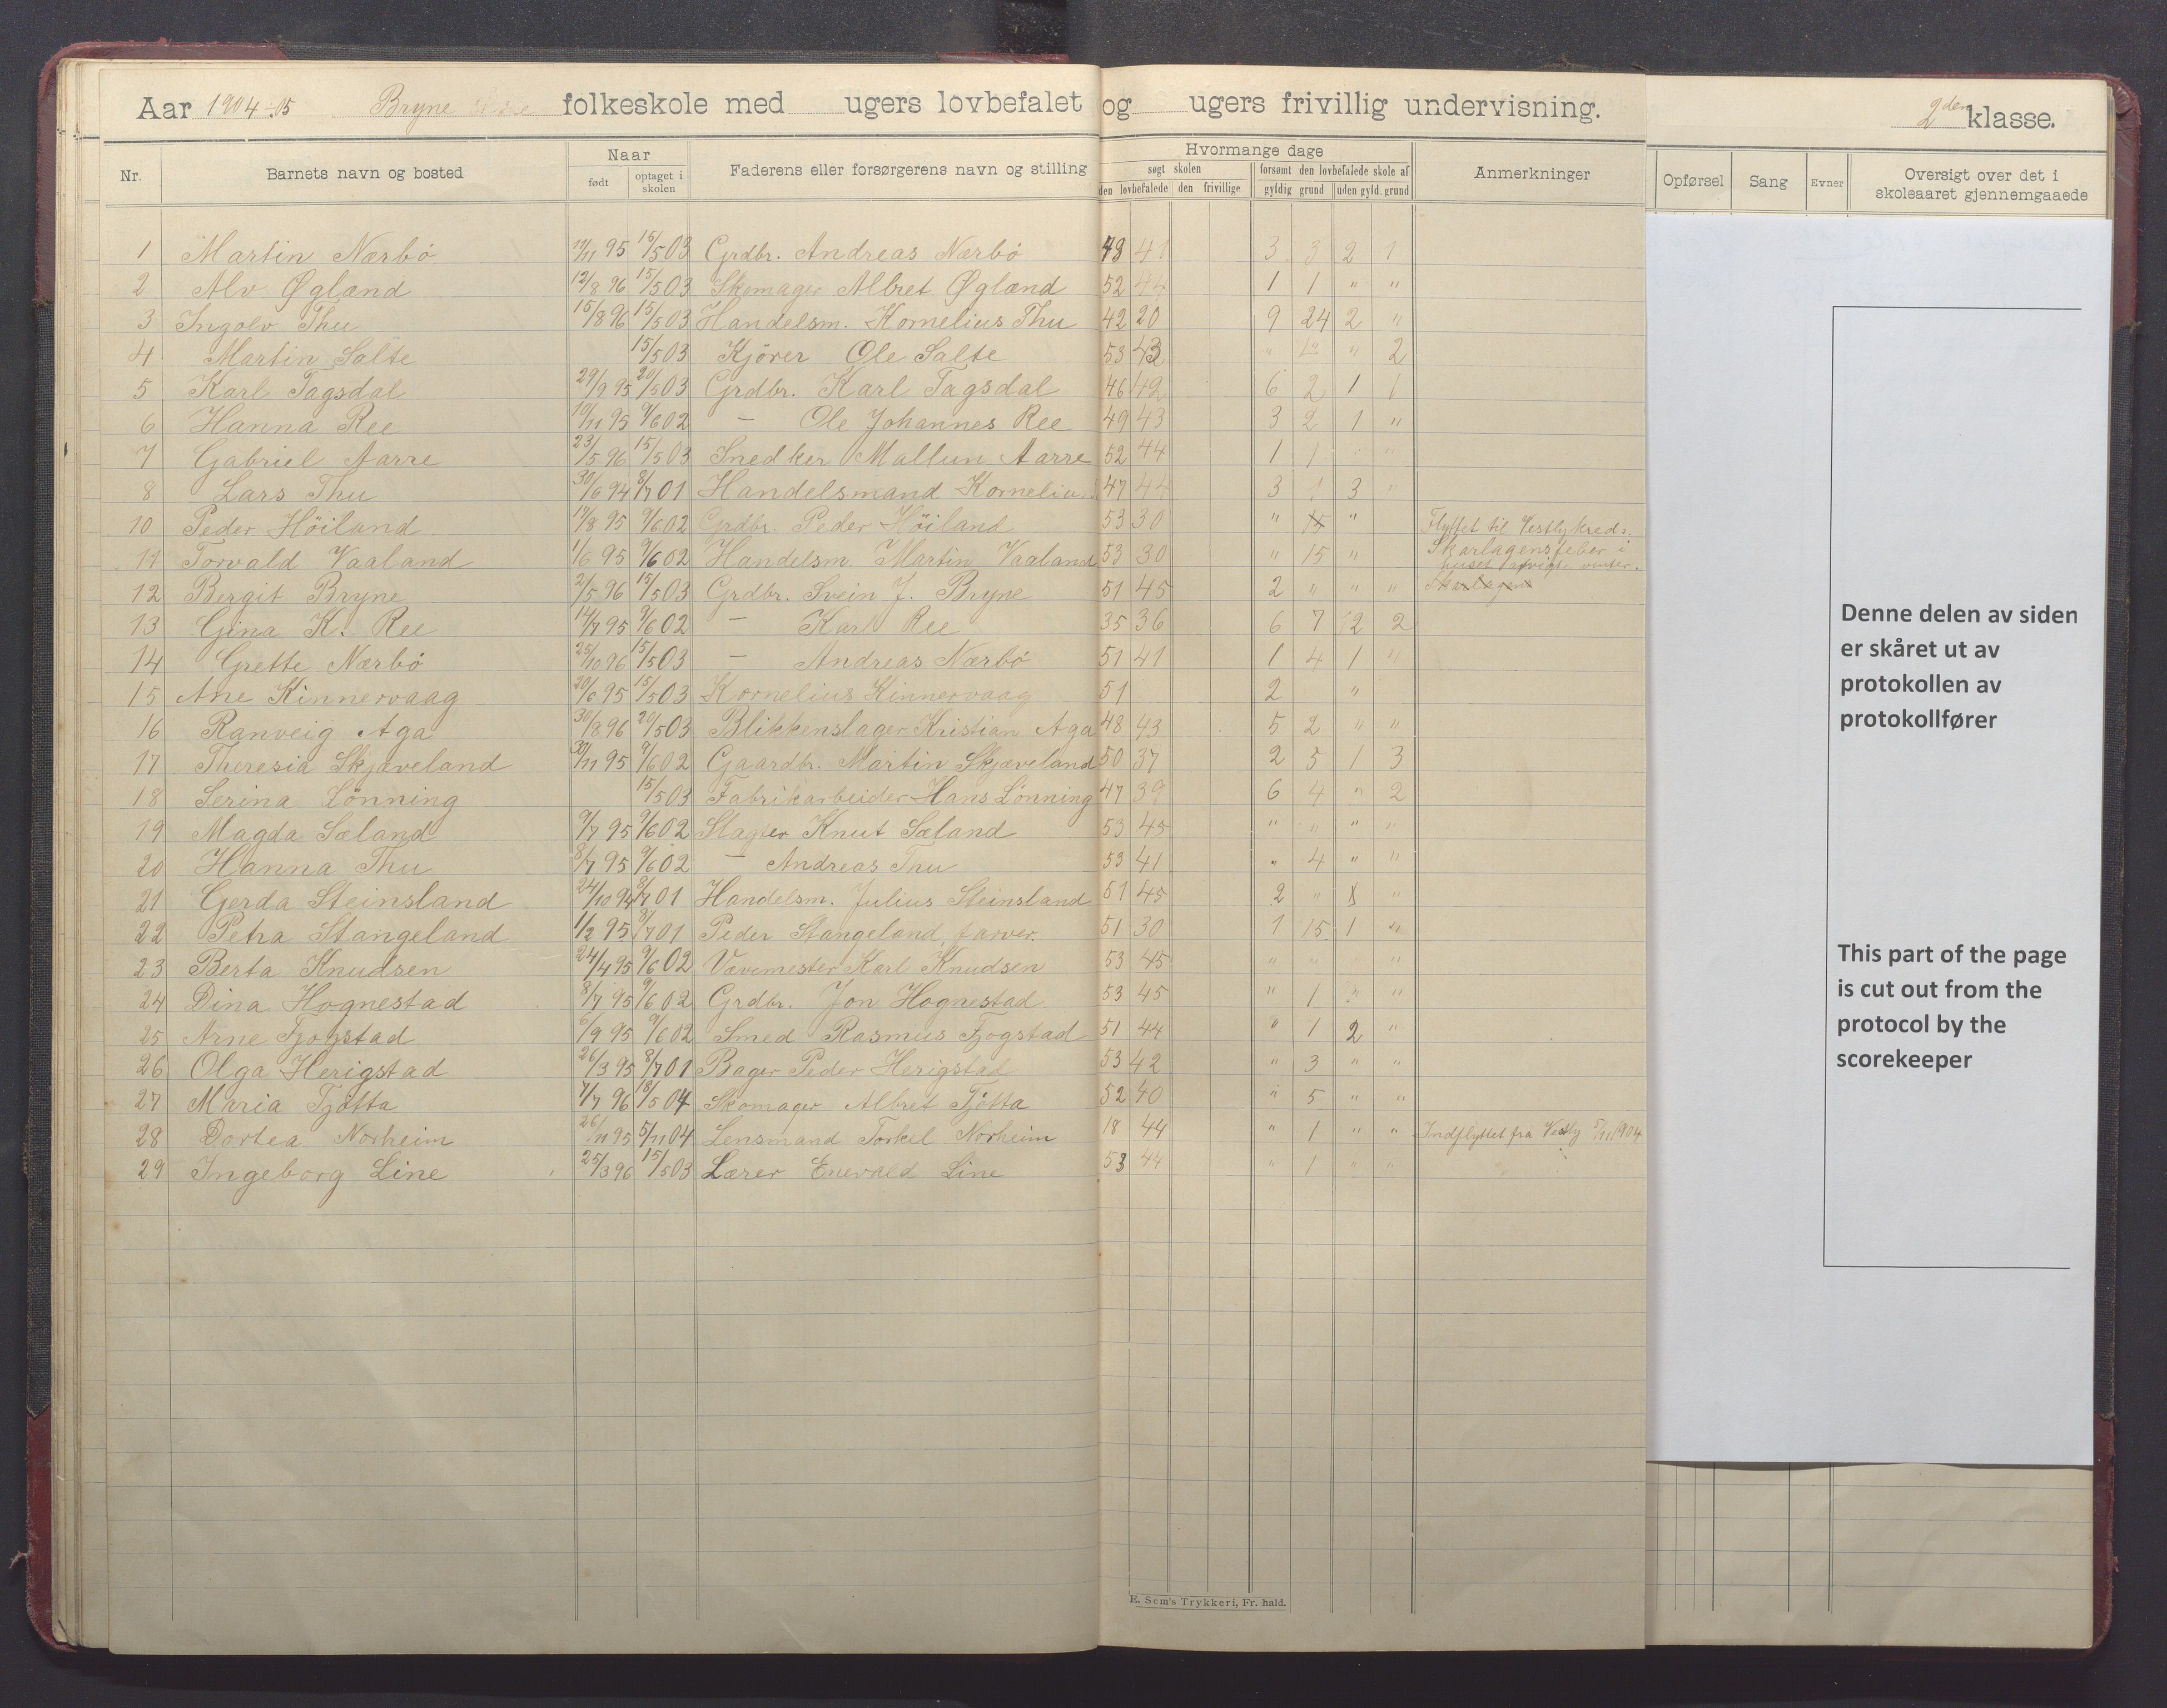 Aar 1904-05 Bryne folkeskole med ugers lovbefalet og ugers frivillig undervisning. 2den klasse.
Nr. Barnets navn og bosted Naar født optaget i skolen Faderens eller forsørgerens navn og stilling Hvormange dage søgt skolen den lovbefalede den frivillige forsømt den lovbefalede skole af gyldig grund uden gyld. grund Anmerkninger Opførsel Sang Evner Oversigt over det i skoleaaret gjennemgaaede
1 Martin Nærbö 95 15/5 03 Grdbr. Andreas Nærbö 48 41 3 3 2 1
2 Alv Øgland 12/8 96 15/5 03 Skomager Albret Øgland 52 44 1 1 " "
3 Ingolv Thu 15/8 96 15/5 03 Handelsm. Kornelius Thu 42 20 9 24 2 "
4 Martin Salte 15/5 03 Kjörer Ole Salte 53 43 " " " 2
5 Karl Tagsdal 29/9 95 20/5 03 Grdbr. Karl Tagsdal 46 42 6 2 1 1
6 Hanna Ree 19/11 95 9/6 02 — Ole Johannes Ree 49 43 3 2 1 "
7 Gabriel Aarre 23/5 96 15/5 03 Snedker Aarre 52 44 1 1 " "
8 Lars Thu 30/6 94 8/7 01 Handelsmand Kornelius 47 44 3 1 3 "
10 Peder Höiland 95 9/6 02 Grdbr. Peder Höiland 53 30 " 15 " Flyttet til Vestly kreds.
11 Torvald Vaaland 1/6 95 9/6 02 Handelsm. Martin Vaaland 53 30 " 15 " Skarlagensfeber i huset vinter.
12 Bergit Bryne 2/5 96 15/5 03 Grdbr. Svein J. Bryne 51 45 2 " " " Skarlagen
13 Gina K. Ree 14/7 95 9/6 02 — Karl Ree 35 36 6 7 2 2
14 Grette Nærbö 25/10 96 15/5 03 — Andreas Nærbö 51 41 1 4 1 "
15 Ane Kinnervaag 20/6 95 15/5 03 Kornelius Kinnervaag 51 2 "
16 Ranveig Aga 30/8 96 20/5 03 Blikkenslager Kristian Aga 48 43 5 2 " "
17 Theresia Skjæveland 30/11 95 9/6 02 Gaardbr. Martin Skjæveland 50 37 2 5 1 3
18 Serina Lönning 15/5 03 Fabrikarbeider Hans Lönning 47 39 6 4 " 2
19 Magda Sæland 9/7 95 9/6 02 Slagter Knut Sæland 53 45 " " " "
20 Hanna Thu 8/7 95 9/6 02 — Andreas Thu 53 41 " 4 " "
21 Gerda Steinsland 24/10 94 8/7 01 Handelsm. Julius Steinsland 51 45 2 " 1 "
22 Petra Stangeland 1/2 95 8/7 01 Peder Stangeland, farver. 51 30 1 15 1 "
23 Berta Knudsen 24/4 95 9/6 02 Vævemester Karl Knudsen 53 45 " " " "
24 Dina Hognestad 8/7 95 9/6 02 Grdbr. Jon Hognestad 53 45 " 1 " "
25 Arne Fjogstad 6/9 95 9/6 02 Smed Rasmus Fjogstad 51 44 " 1 2 "
26 Olga Herigstad 26/3 95 8/7 01 Bager Peder Herigstad 53 42 " 3 " "
27 Maria Tjötta 7/7 96 18/5 04 Skomager Albret Tjötta 52 40 " 5 " "
28 Dortea Norheim 26/11 95 5/11 04 Lensmand Torkel Norheim 18 44 " 1 " " Indflyttet fra Vestly 5/11 1904
29 Ingeborg Line 25/3 96 15/5 03 Lærer Enevald Line 53 44 " 1 " "
E. Sem's Trykkeri, Fr. hald.
Denne delen av siden
er skåret ut av
protokollen av
protokollfører
This part of the page
is cut out from the
protocol by the
scorekeeper